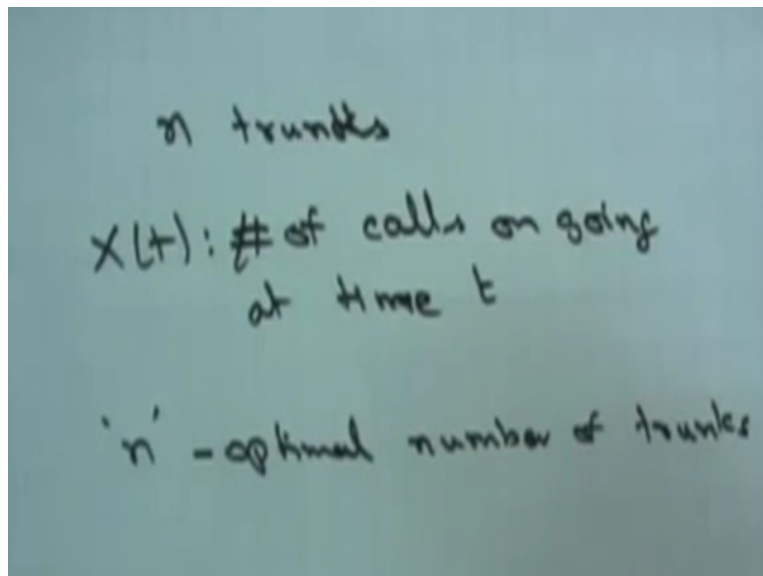 n trunks
X(t): # of calls on going
at time t
'n' - optimal number of trunks